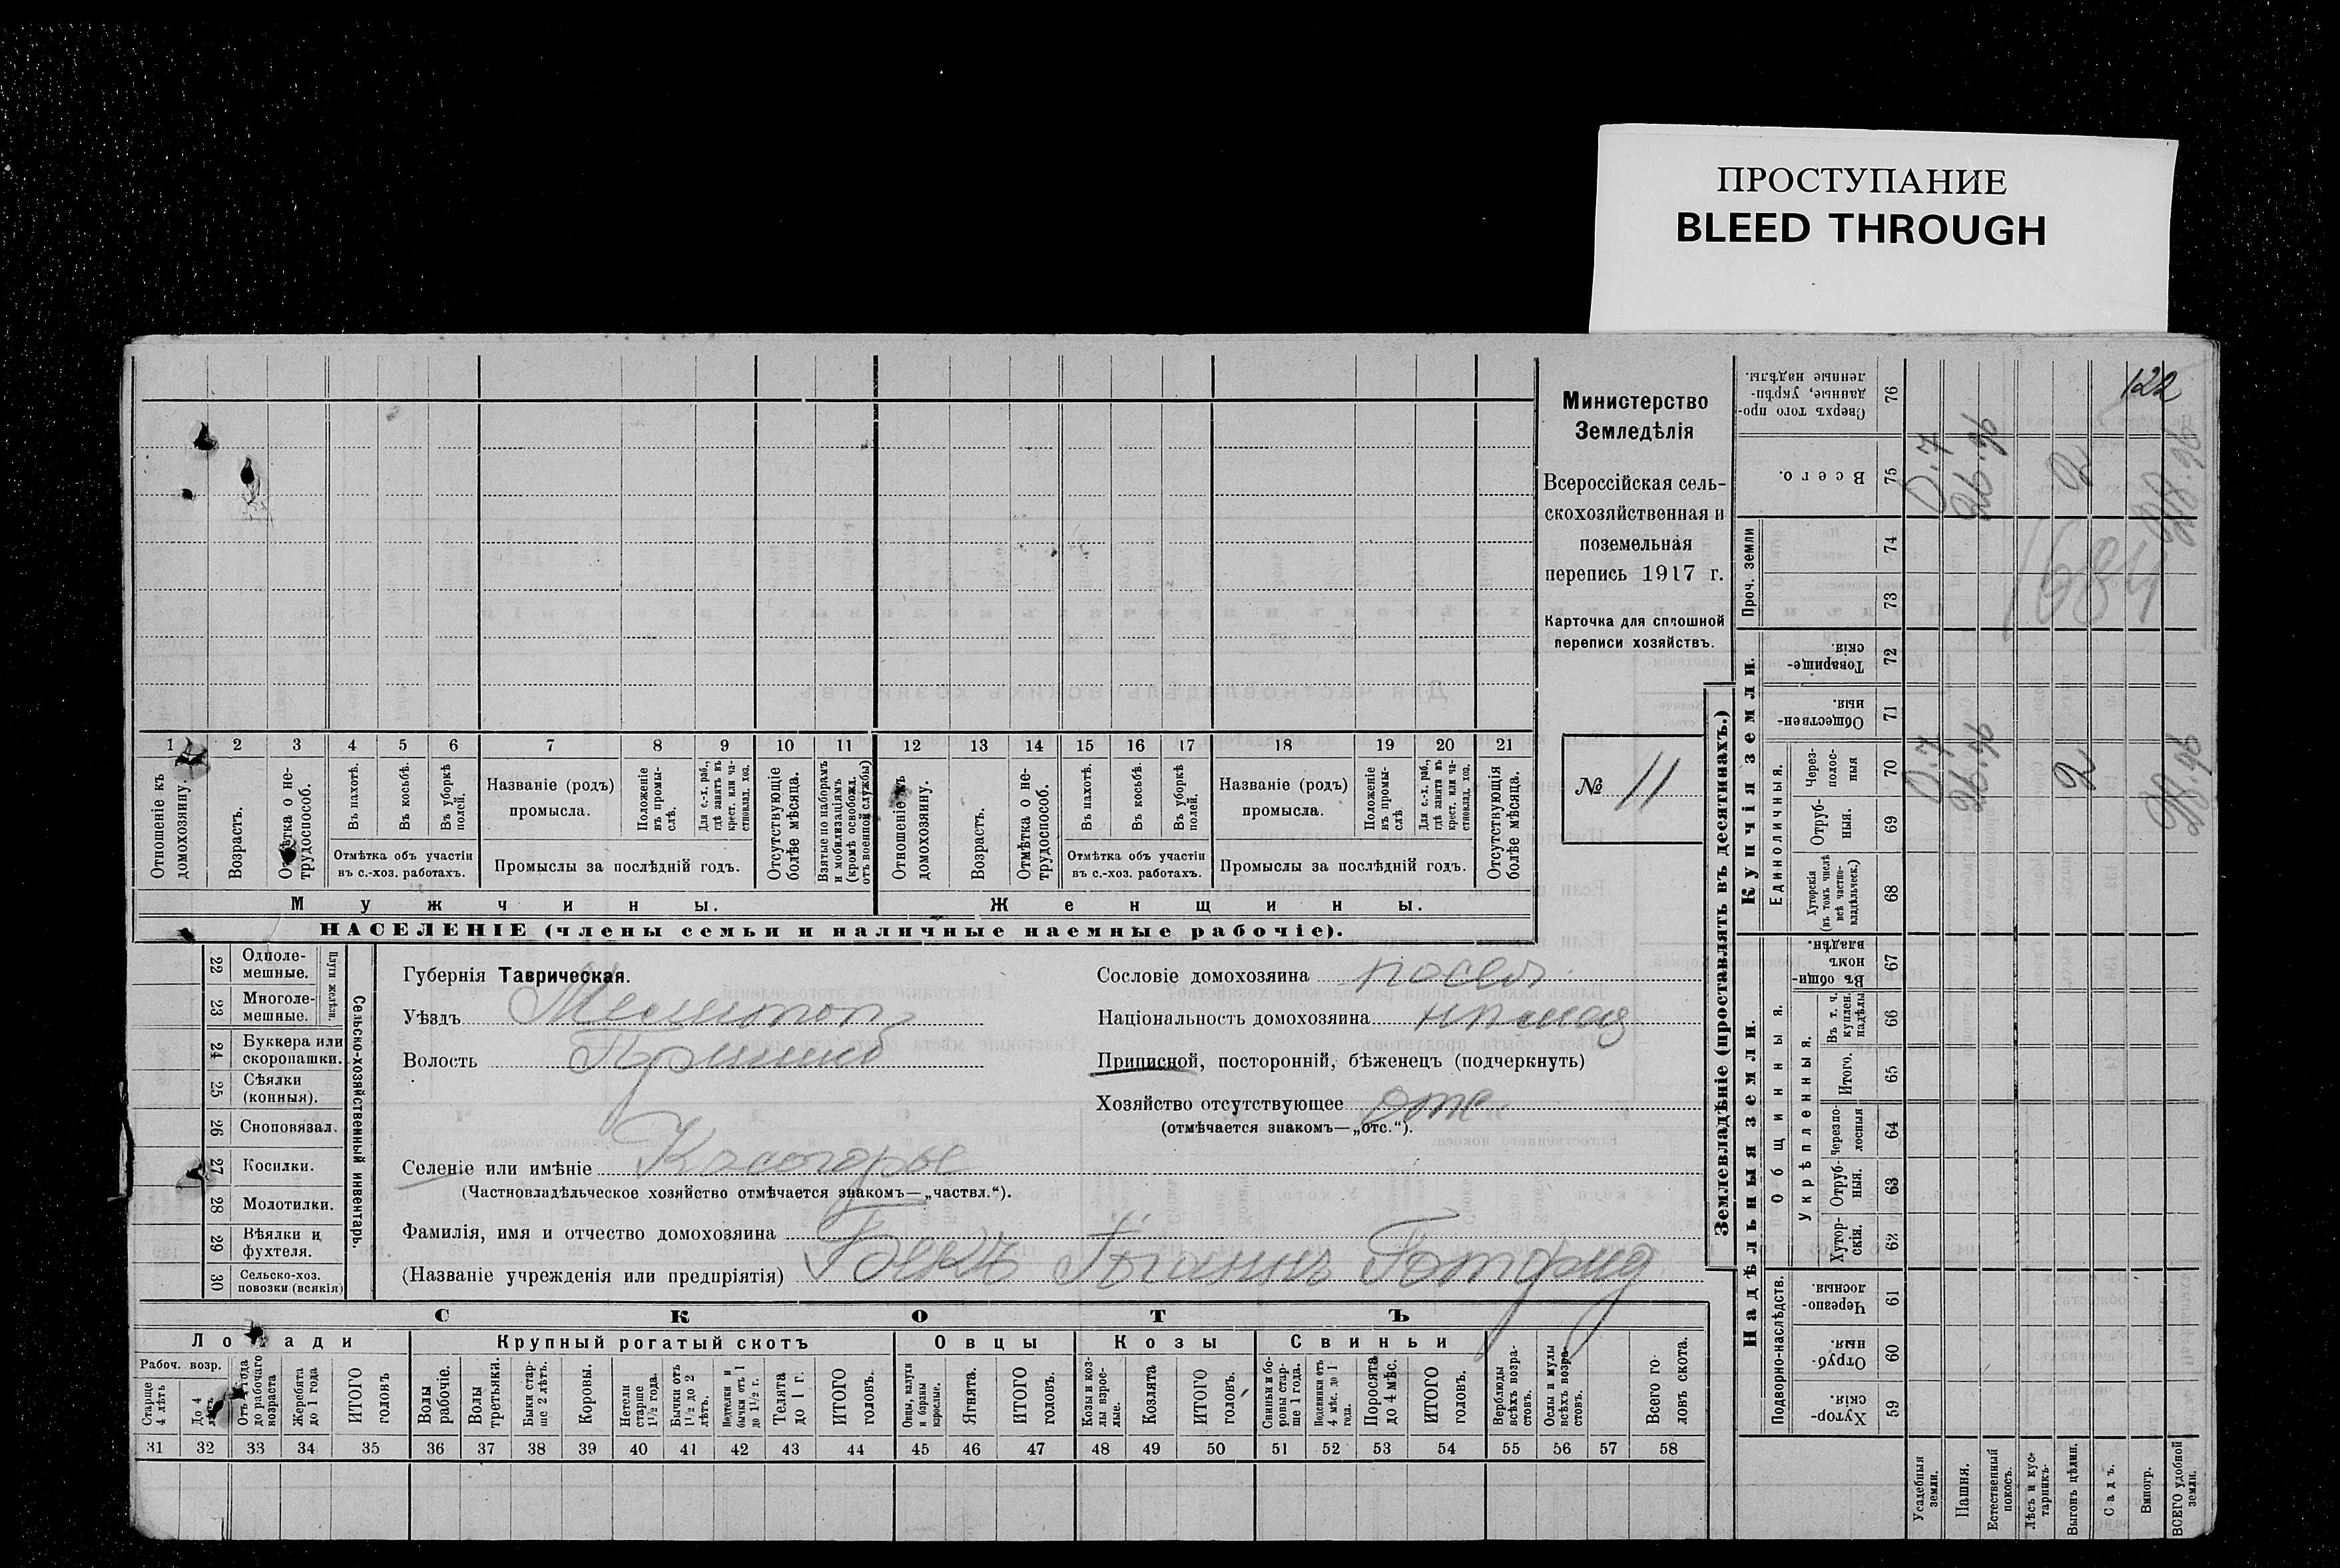 ПРОСТУПАНИЕ
BLEED THROUGH
122
Министерство
Земледѣлія
Всероссійская сель-
скохозяйственная и
поземельная
перепись 1917 г.
Карточка для сплошной
переписи хозяйствъ.
№ 11
1 2 3 4 5 6 7 8 9 10 11 12 13 14 15 16 17 18 19 20 21
Отношеніе къ домохозяину.
Возрастъ.
Отмѣтка о не-трудоспособ.
Въ пахотѣ.
Въ косьбѣ.
Въ уборкѣ полей.
Отмѣтка объ участіи въ с.-хоз. работахъ.
Названіе (родъ) промысла.
Положеніе въ промы-слѣ.
Для с.-х. раб., гдѣ занятъ въ крест. или ча-стновлад. хоз.
Промыслы за послѣдній годъ.
Отсутствующіе болѣе мѣсяца.
Взятые по наборамъ и мобилизаціямъ (кромѣ освобожд. отъ военной службы)
Отношеніе къ домохозяину.
Возрастъ.
Отмѣтка о не-трудоспособ.
Въ пахотѣ.
Въ косьбѣ.
Въ уборкѣ полей.
Отмѣтка объ участіи въ с.-хоз. работахъ.
Названіе (родъ) промысла.
Положеніе въ промы-слѣ
Для с.-х. раб., гдѣ занята въ крест. или ча-стновлад. хоз.
Промыслы за послѣдній годъ.
Отсутствующія болѣе мѣсяца.
Мужчины.
Женщины.
НАСЕЛЕНІЕ (члены семьи и наличные наемные рабочіе).
22 Одноле-мешные.
23 Многоле-мешные.
Плуги желѣзн.
24 Буккера или скоропашки.
25 Сѣялки (конныя).
26 Сноповязал.
27 Косилки.
28 Молотилки.
29 Вѣялки и фухтеля.
30 Сельско-хоз. повозки (всякія)
Сельско-хозяйственный инвентарь.
Губернія Таврическая.
Уѣздъ Мелитоп
Волость Пришиб
Селеніе или имѣніе
(Частновладѣльческое хозяйство отмѣчается знакомъ—„частвл.“).
Фамилія, имя и отчество домохозяина
(Названіе учрежденія или предпріятія) Бекъ Іоганнъ Готфрид
Сословіе домохозяина посел.
Національность домохозяина
Приписной, посторонній, бѣженец (подчеркнуть)
Хозяйство отсутствующее отс
(отмѣчается знакомъ—„отс.“).
СКОТЪ
Лошади
Крупный рогатый скотъ
Овцы
Козы
Свиньи
Рабоч. возр.
Старше 4 лѣтъ
До 4 лѣтъ.
Отъ 1 года до рабочаго возраста
Жеребята до 1 года
ИТОГО головъ
Волы рабочіе.
Волы третьяки.
Быки стар-ше 2 лѣтъ.
Коровы.
Нетели старше 1½ года.
Бычки отъ 1½ до 2 лѣтъ.
Нетелки и бычки отъ 1 до 1½ г.
Телята до 1 г.
ИТОГО головъ.
Овцы, валухи и бараны взрослые.
Ягнята.
ИТОГО головъ.
Козы и коз-лы взрос-лые.
Козлята
ИТОГО головъ.
Свиньи и бо-ровы стар-ше 1 года.
Подсвинки отъ 4 мѣс. до 1 года.
Поросята до 4 мѣс.
ИТОГО головъ.
Верблюды всѣхъ возра-стовъ.
Ослы и мулы всѣхъ возра-стовъ.
Всего го-ловъ скота.
31 32 33 34 35 36 37 38 39 40 41 42 43 44 45 46 47 48 49 50 51 52 53 54 55 56 57 58
Землевладѣніе (проставлять въ десятинахъ.)
Сверхъ того про-данные, укрѣп-ленные надѣлы. 76
Всего. 75 0.7 26.96 2 28.96
Проч. земли 74 73
1684
Купчія земли.
Товарище-скія. 72
Обществен-ныя. 71
Единоличныя.
Через-полос-ныя 70 0.7 26.96 2 28.96
Отруб-ныя. 69
Хуторскія (въ томъ числѣ всѣ частно-владѣльческ.) 68
Надѣльныя земли.
Общинныя.
Въ общи-номъ владѣн. 67
Укрѣпленныя.
Въ т. ч. куплен. надѣлы 66
Итого. 65
Черезпо-лосныя 64
Отруб-ныя. 63
Хутор-скія. 62
Подворно-наслѣдств.
Черезпо-лосныя. 61
Отруб-ныя. 60
Хутор-скія 59
Усадебныя земли.
Пашня.
Естественный покосъ.
Лѣсъ и кус-тарникъ.
Выгонъ цѣлин.
Садъ.
Виногр.
ВСЕГО удобной земли.